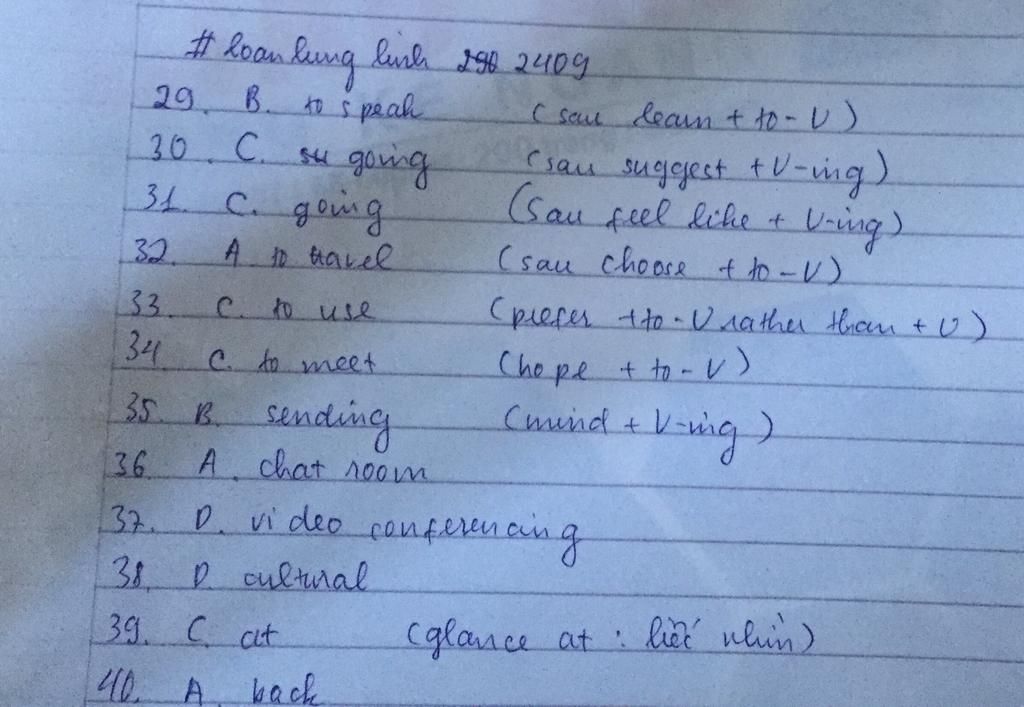 # loan lung linh 2409
29. B. to speak (sau learn + to - V)
30. C. going (sau suggest + V-ing)
31. C. going (Sau feel like + V-ing)
32. A to travel (sau choose + to - V)
33. C. to use (prefer + to - V rather than + V)
34 C. to meet (hope + to - V)
35. B. sending (mind + V-ing)
36. A. chat room
37. D. video conferencing
38. D. cultural
39. C. at (glance at : liếc nhìn)
40. A. back